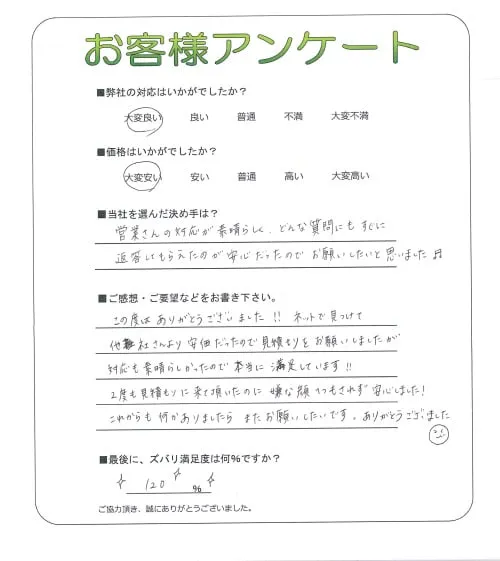 お客様アンケート
■弊社の対応はいかがでしたか？
大変良い 良い 普通 不満 大変不満
■価格はいかがでしたか？
大変安い 安い 普通 高い 大変高い
■当社を選んだ決め手は？
営業さんの対応が素晴らしく、どんな質問にもすぐに
返答してもらえたのが安心だったのでお願いしたいと思いました♬
■ご感想・ご要望などをお書き下さい。
この度はありがとうございました!! ネットで見つけて
他社さんより安価だったので見積もりをお願いしましたが
対応も素晴らしかったので本当に満足しています!!
2度も見積もりに来て頂いたのに嫌な顔1つもされず安心しました!
これからも何かありましたらまたお願いしたいです。ありがとうございました
■最後に、ズバリ満足度は何％ですか？
120 ％
ご協力頂き、誠にありがとうございました。